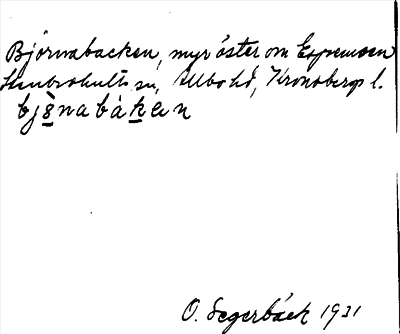 Björnabacken, myr öster om Espemosen
Stenbrohults sn, Allbo hd, Kronobergs l.
bjönabákan
O. Segerbäck 1931